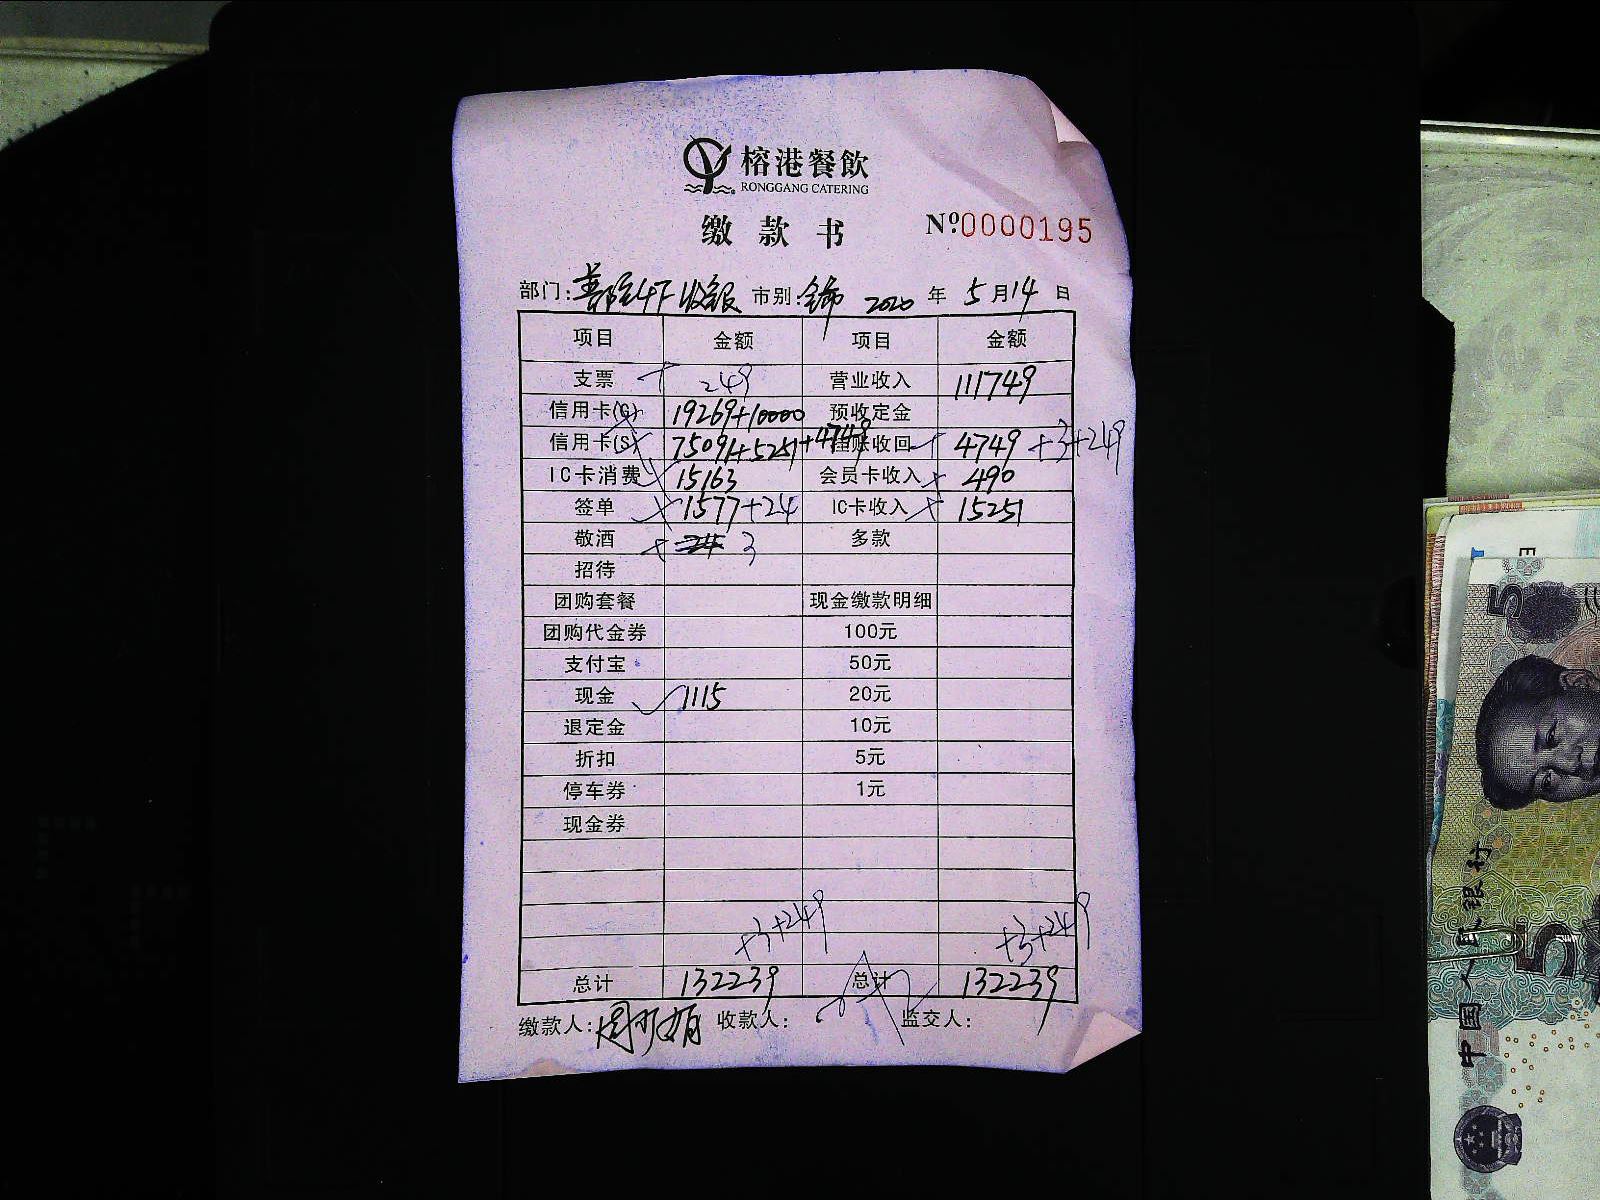 榕港餐飲
RONGGANG CATERING
缴款书 Nº:0000195
部门: 收银 市别:全市 2020 年 5 月 14 日
项目 金额 项目 金额
支票 249 营业收入 111749
信用卡(G) 19269+10000 预收定金
信用卡(S) 75091+5251+4749 挂账收回 4749 +3+249
IC卡消费 15163 会员卡收入 490
签单 1577+24 IC卡收入 15251
敬酒 24 3 多款
招待
团购套餐 现金缴款明细
团购代金券 100元
支付宝 50元
现金 1115 20元
退定金 10元
折扣 5元
停车券 1元
现金券
+3+249 +3+249
总计 132239 总计 132239
缴款人: 收款人: 监交人:
5
中国人民银行
5